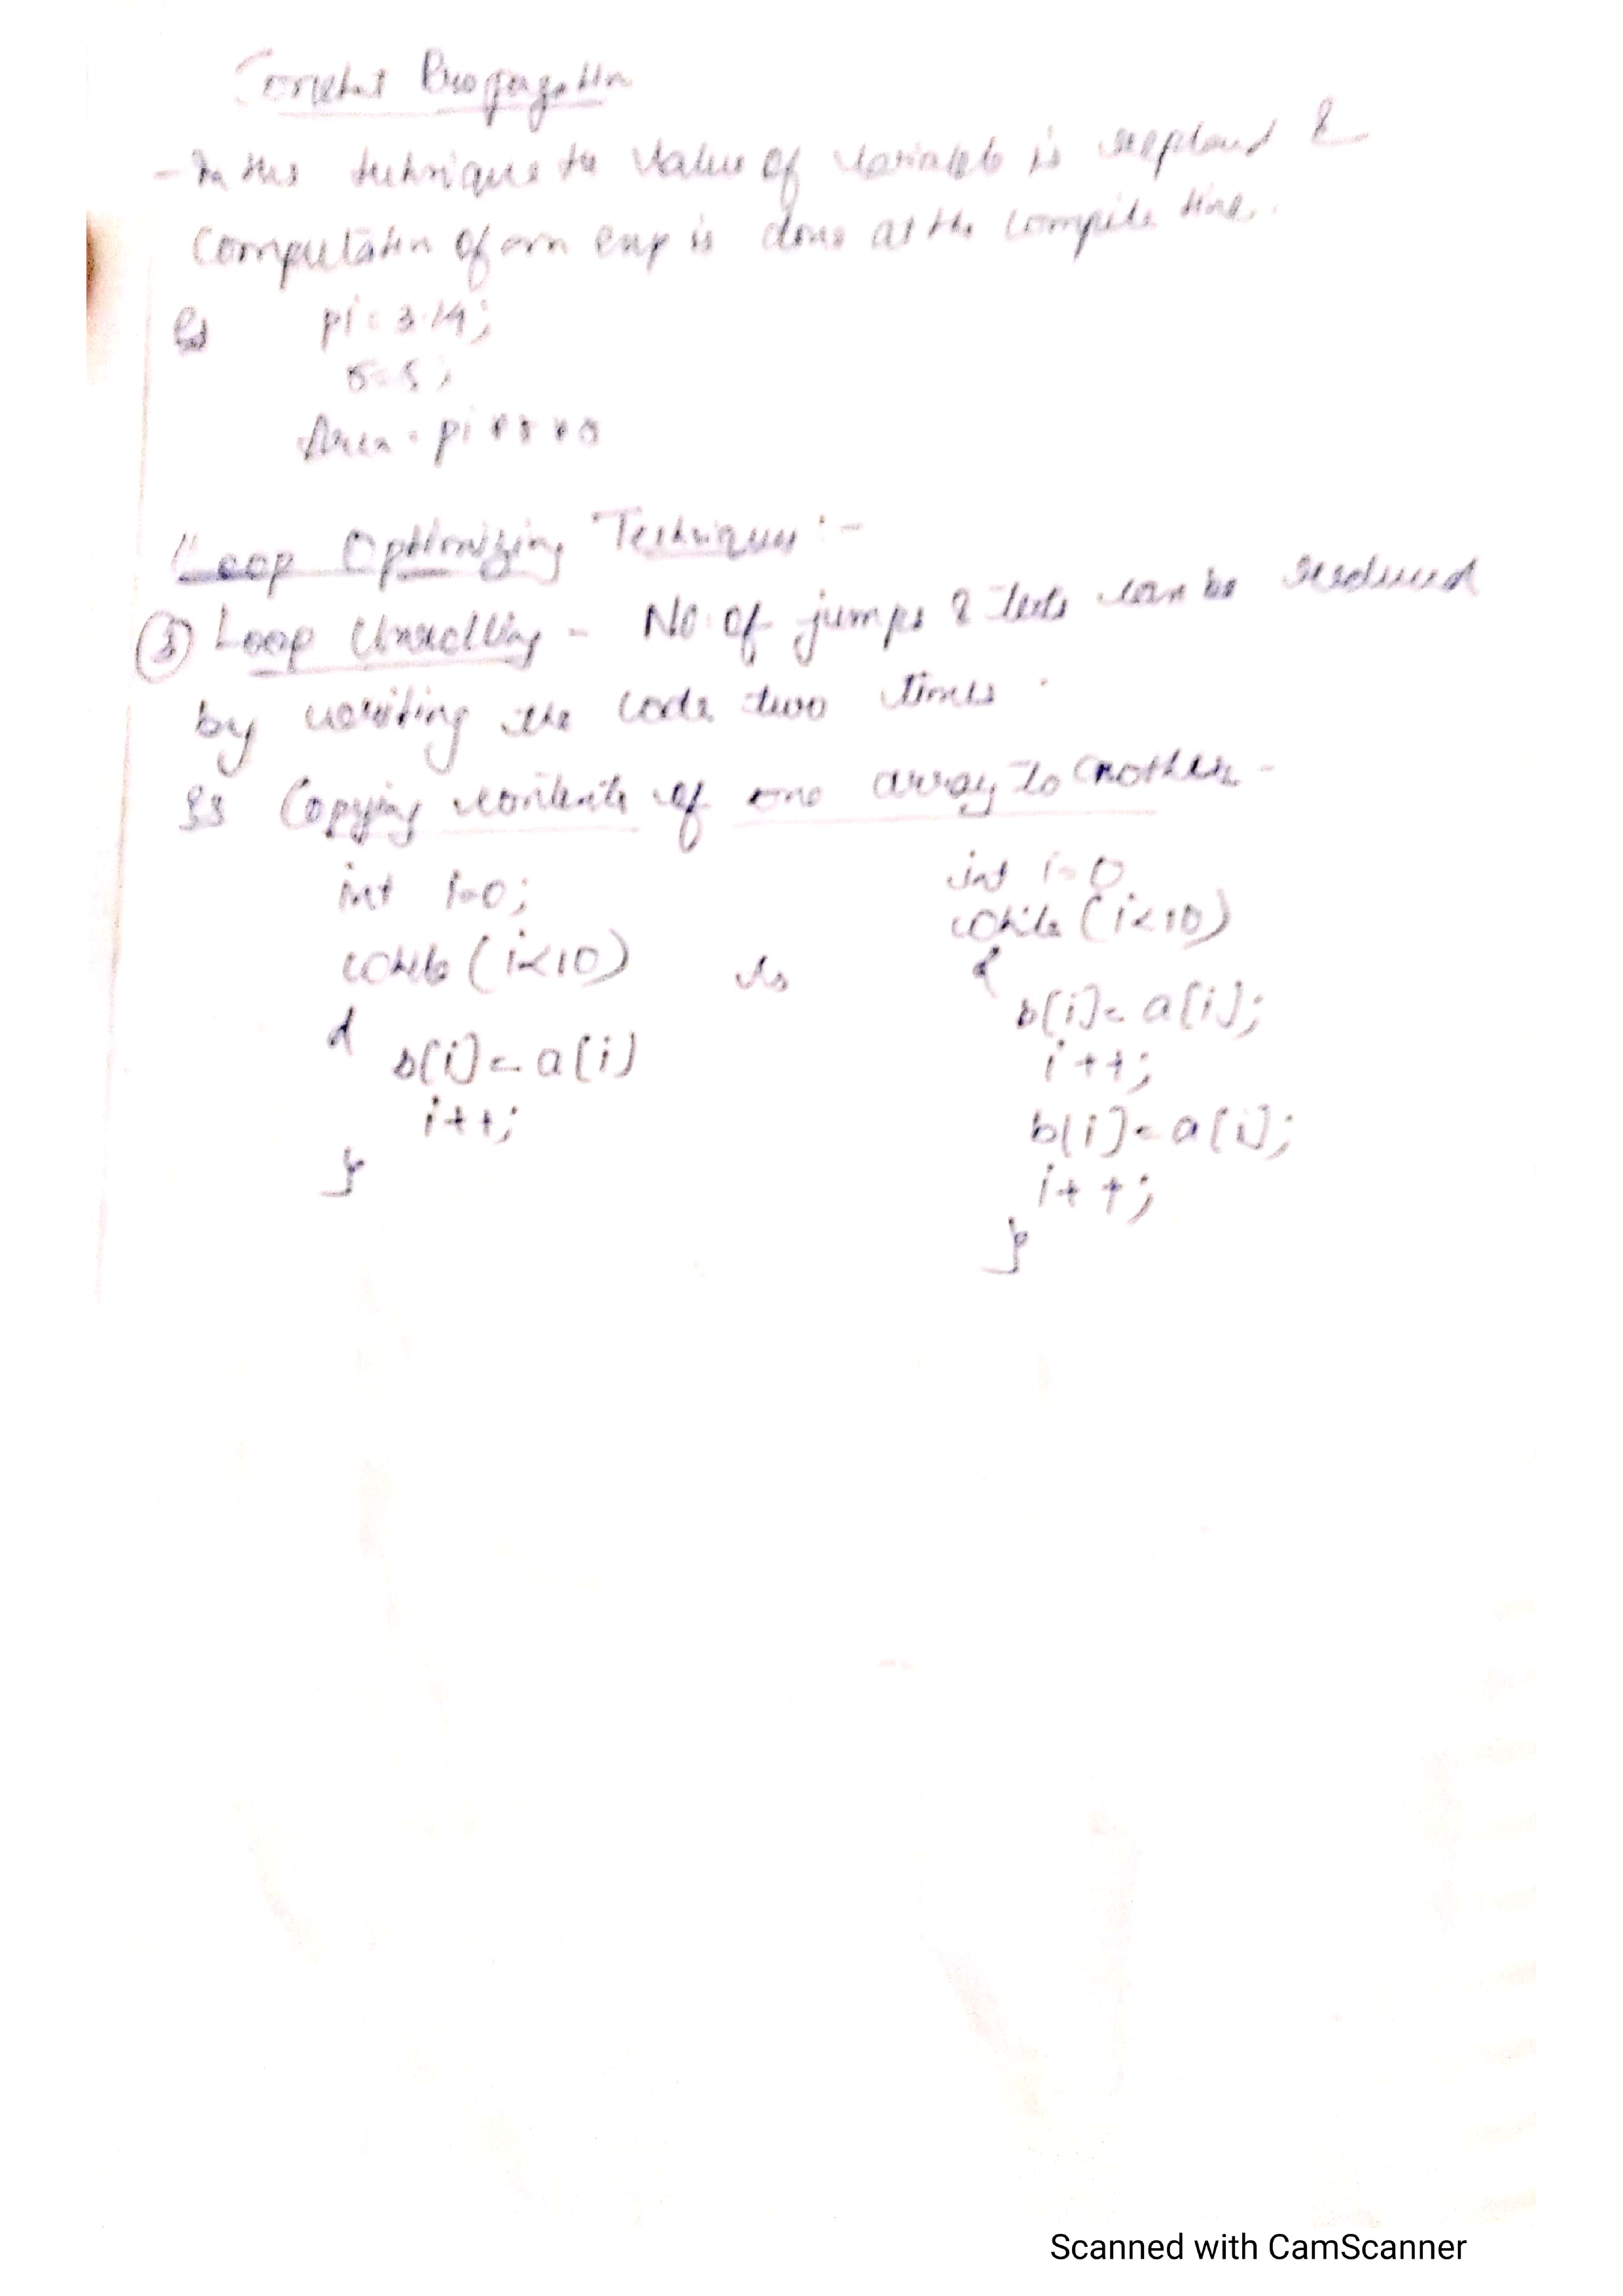 Constant Propagation
- In this technique the value of variable is replaced &
Computation of an exp is done at the compile time.
Eg pi = 3.14;
r=5;
Area = pi * r * r
Loop Optimizing Techniques :-
① Loop Unrolling - No. of jumps & tests can be reduced
by writing the code two times.
Eg Copying contents of one array to another -
int i=0;
while (i<10)
{
b[i] = a[i]
i++;
}
is
int i=0
while (i<10)
{
b[i] = a[i];
i++;
b[i] = a[i];
i++;
}
Scanned with CamScanner